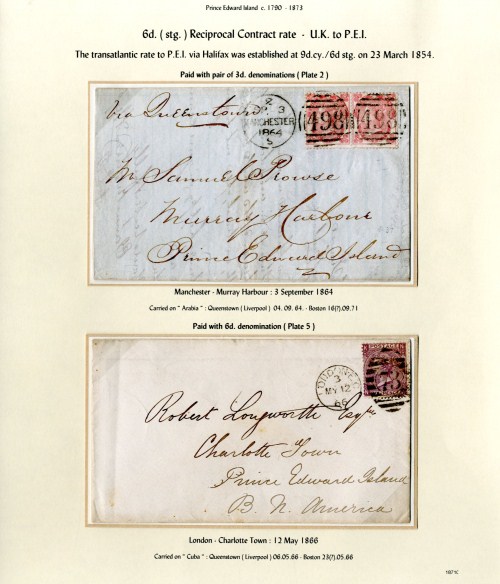 Prince Edward Island c. 1790 - 1873
6d. ( stg. ) Reciprocal Contract rate - U.K. to P.E.I.
The transatlantic rate to P.E.I. via Halifax was established at 9d.cy./6d stg. on 23 March 1854.
Paid with pair of 3d. denominations ( Plate 2 )
Via Queenstown
MANCHESTER
3
1864
5
498 498
Mr Samuel Prowse
Murray Harbour
Prince Edward Island
Manchester - Murray Harbour : 3 September 1864
Carried on " Arabia " : Queenstown ( Liverpool ) 04. 09. 64. - Boston 16(?).09.71
Paid with 6d. denomination ( Plate 5 )
POSTAGE
LONDON
3
MY 12
66
Robert Longworth Esqre
Charlotte Town
Prince Edward Island
B. N. America
London - Charlotte Town : 12 May 1866
Carried on " Cuba " : Queenstown ( Liverpool ) 06.05.66 - Boston 23(?).05.66
1871C